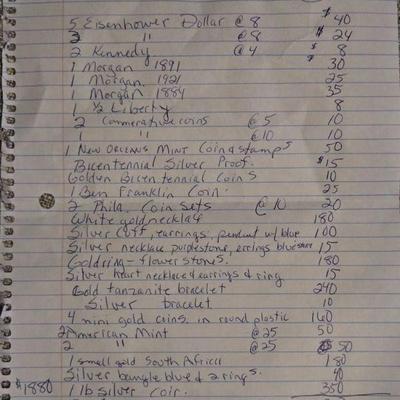 5 Eisenhower Dollar @ 8 $40
3 " @8 $24
2 Kennedy @4 $8
1 Morgan 1891 30
1 Morgan 1921 25
1 Morgan 1884 35
1 1/2 Liberty 8
2 Commerative coins @5 10
1 " @10 10
1 New Orleans Mint Coin & stamps 50
Bicentennial Silver Proof. $15
Golden Bicentennial Coins 10
1 Ben Franklin Coin. 25
2 Phila. Coin Sets @ 10 20
White gold necklace 180
Silver Cuff, earrings, pendant w/ blue 100
Silver necklace purplestone, errings blue stone 15
Gold ring - flower stones. 180
Silver heart necklace & earrings & ring 15
Gold tanzanite bracelet 240
Silver bracelet 10
4 mini gold coins in round plastic 160
2 American Mint @25 50
2 " @25 $50
1 small gold South Africa 180
Silver bangle blue & 2 rings. 40
$1880 1 lb silver coin. 350